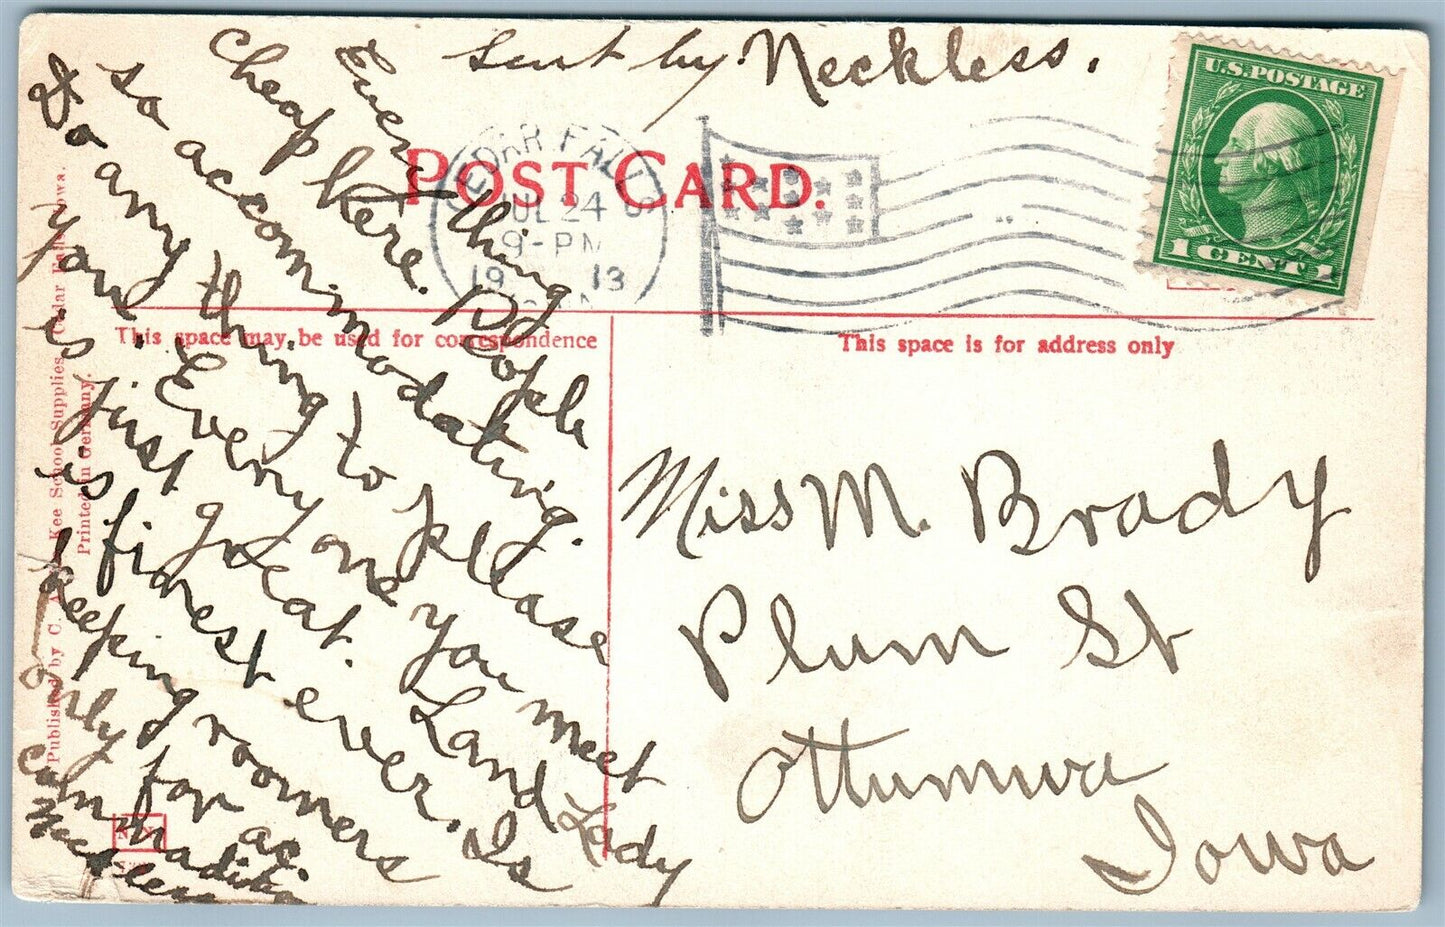 Sent by Neckless.
U.S. POSTAGE
1 CENT 1
POST CARD.
CEDAR FALLS
JUL 24
9-PM
1913
This space may be used for correspondence
This space is for address only
Every thing
cheap here. People
so accommodating.
Do any thing to please
you. Every one you meet
is just great. Land Lady
is finest ever. Is
keeping roomers
only for ac-
commadition
Neckless
Miss M. Brady
Plum St
Ottumwa
Iowa
Published by C. A. Kee School Supplies, Cedar Falls, Iowa.
Printed in Germany.